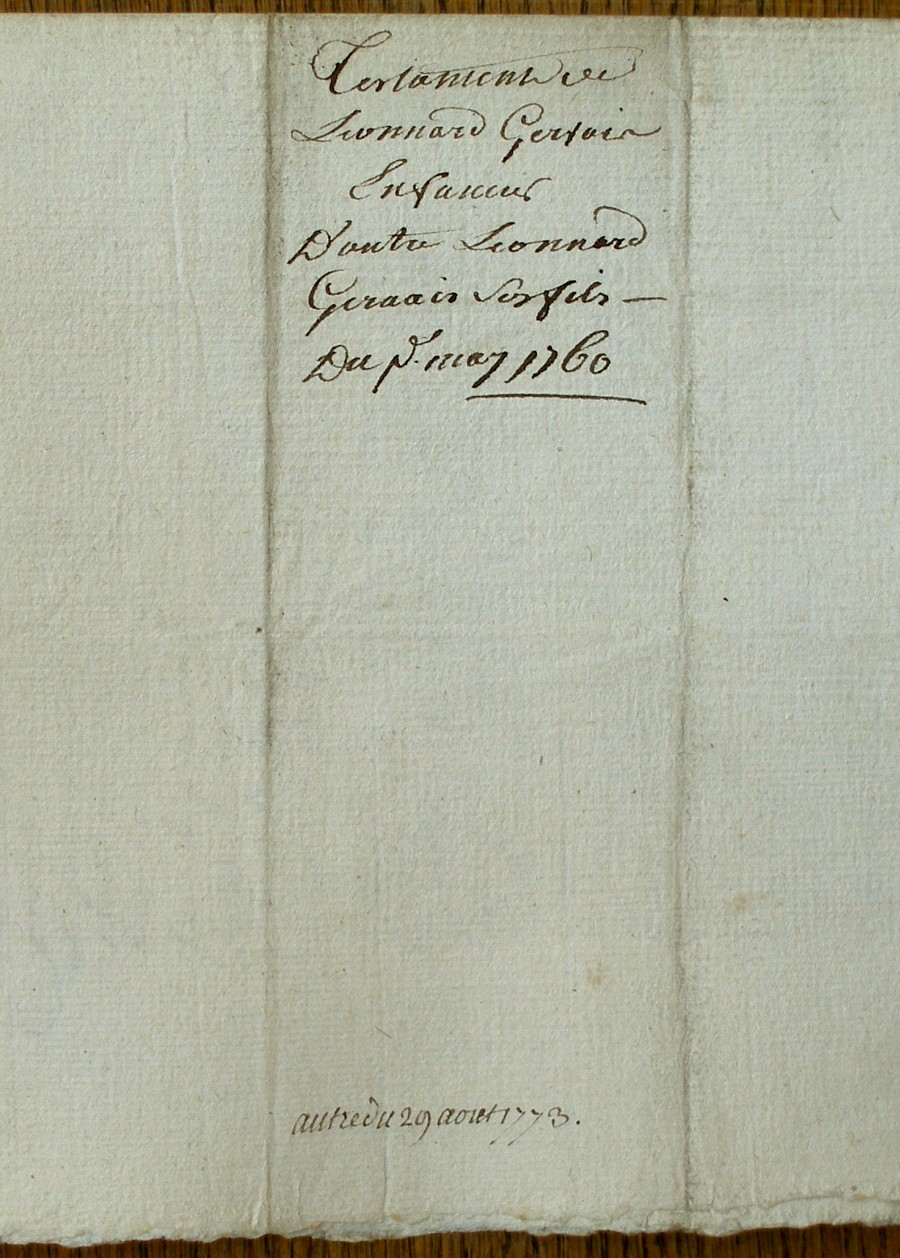 Testament de
Leonnard Gervais
En faveur
D'autre Leonnard
Gervais son fils —
Du may 1760
autre du 29 aout 1773.